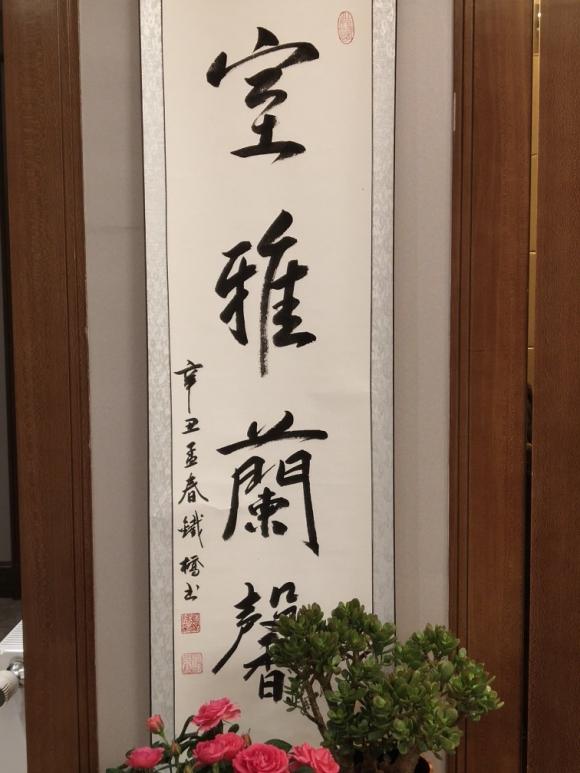 室雅蘭馨
辛丑孟春鐵橋书